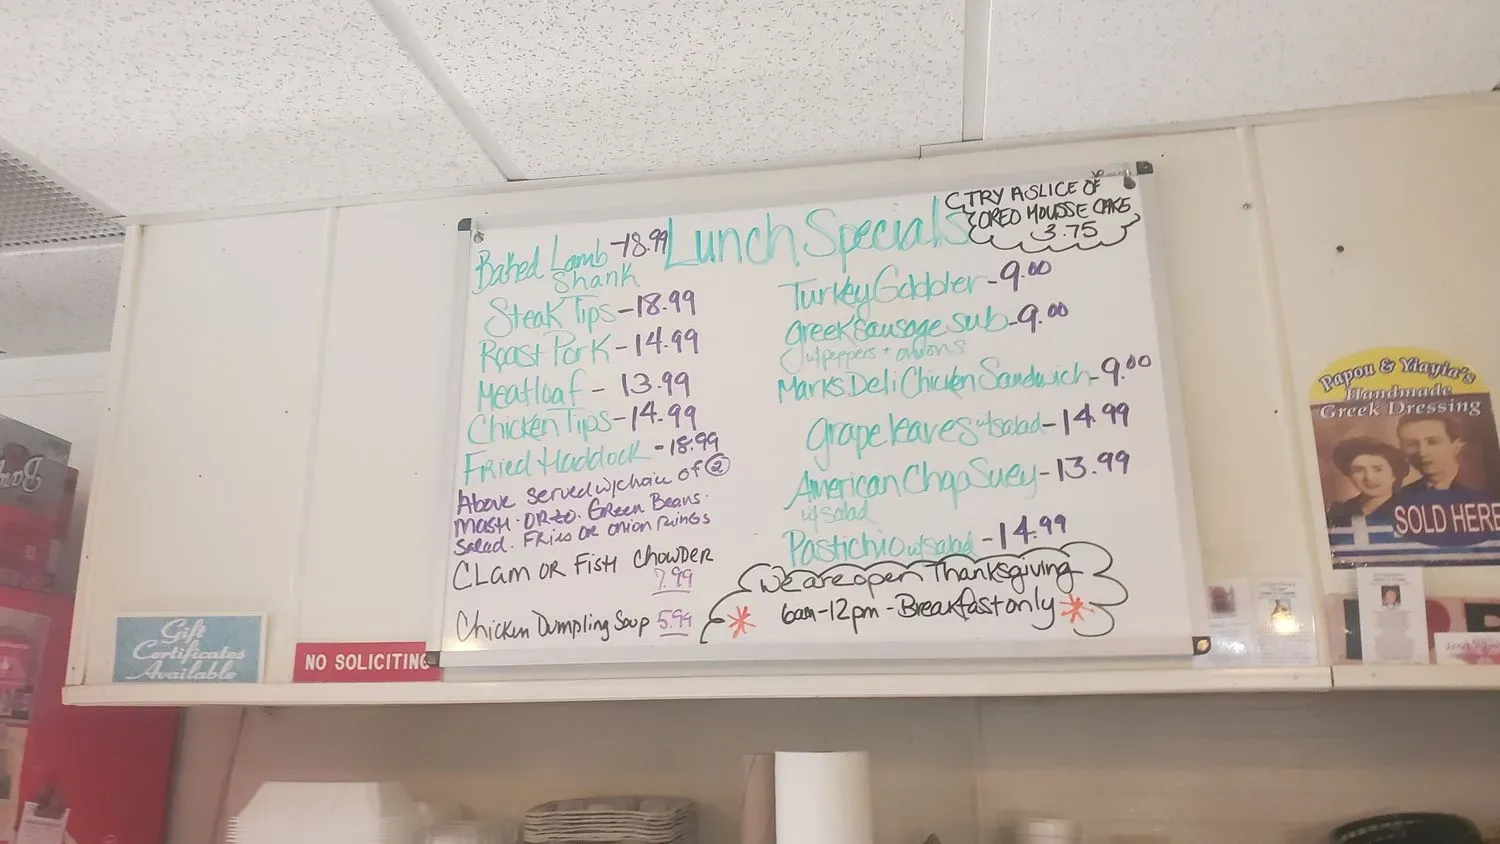 Lunch Specials
TRY A SLICE OF
OREO MOUSSE CAKE
3.75
Baked Lamb -18.99
Shank
Steak Tips - 18.99
Roast Pork - 14.99
Meatloaf - 13.99
Chicken Tips - 14.99
Fried Haddock - 18.99
Above served w/choice of 2
MASH. ORZO. GREEN BEANS.
Salad. FRIES OR ONION RINGS
CLAM OR FISH CHOWDER
7.99
Chicken Dumpling Soup 5.99
Turkey Gobbler - 9.00
Greek sausage sub - 9.00
w/peppers + onions
Marks Deli Chicken Sandwich - 9.00
Grapeleaves w/salad - 14.99
American Chop Suey - 13.99
w/salad
Pastichio w/salad - 14.99
We are open Thanksgiving
6am-12pm - Breakfast only
Gift
Certificates
Available
NO SOLICITING
Papou & Yiayia's
Handmade
Greek Dressing
SOLD HERE